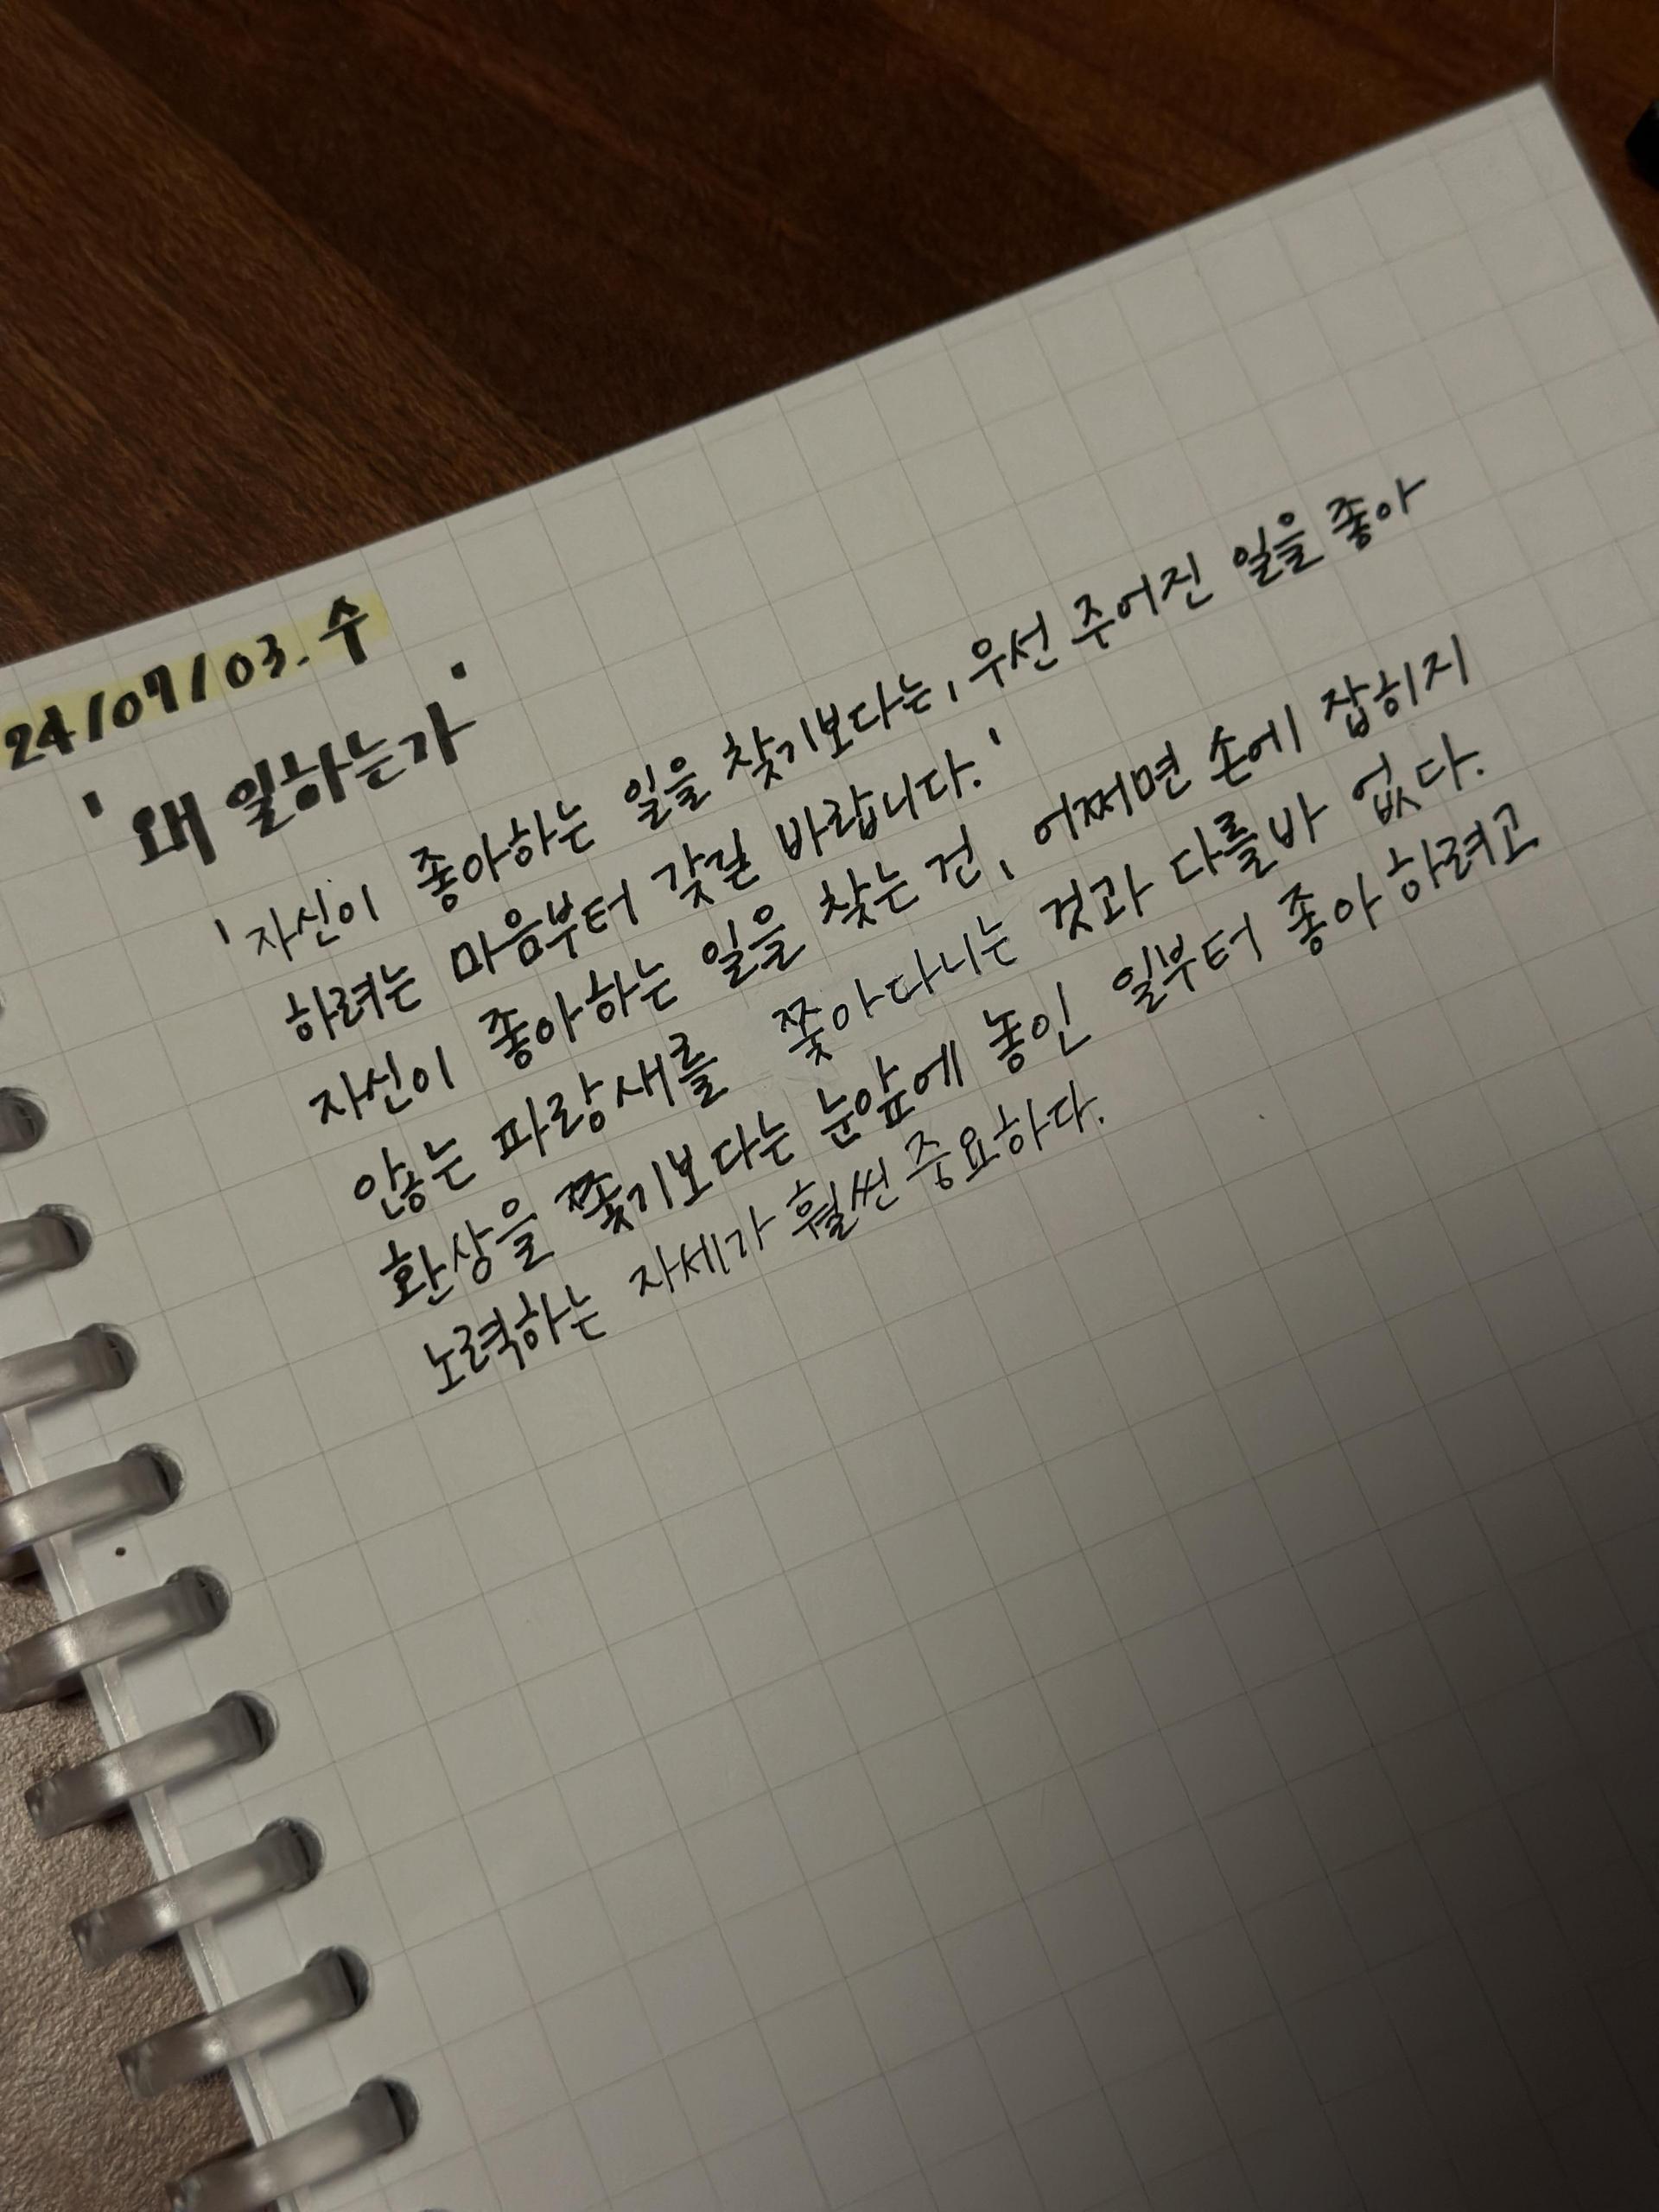 24/07/03. 수
'왜 일하는가'
'자신이 좋아하는 일을 찾기보다는, 우선 주어진 일을 좋아
하려는 마음부터 갖길 바랍니다.'
자신이 좋아하는 일을 찾는 건, 어쩌면 손에 잡히지
않는 파랑새를 쫓아다니는 것과 다를바 없다.
환상을 쫓기보다는 눈앞에 놓인 일부터 좋아하려고
노력하는 자세가 훨씬 중요하다.